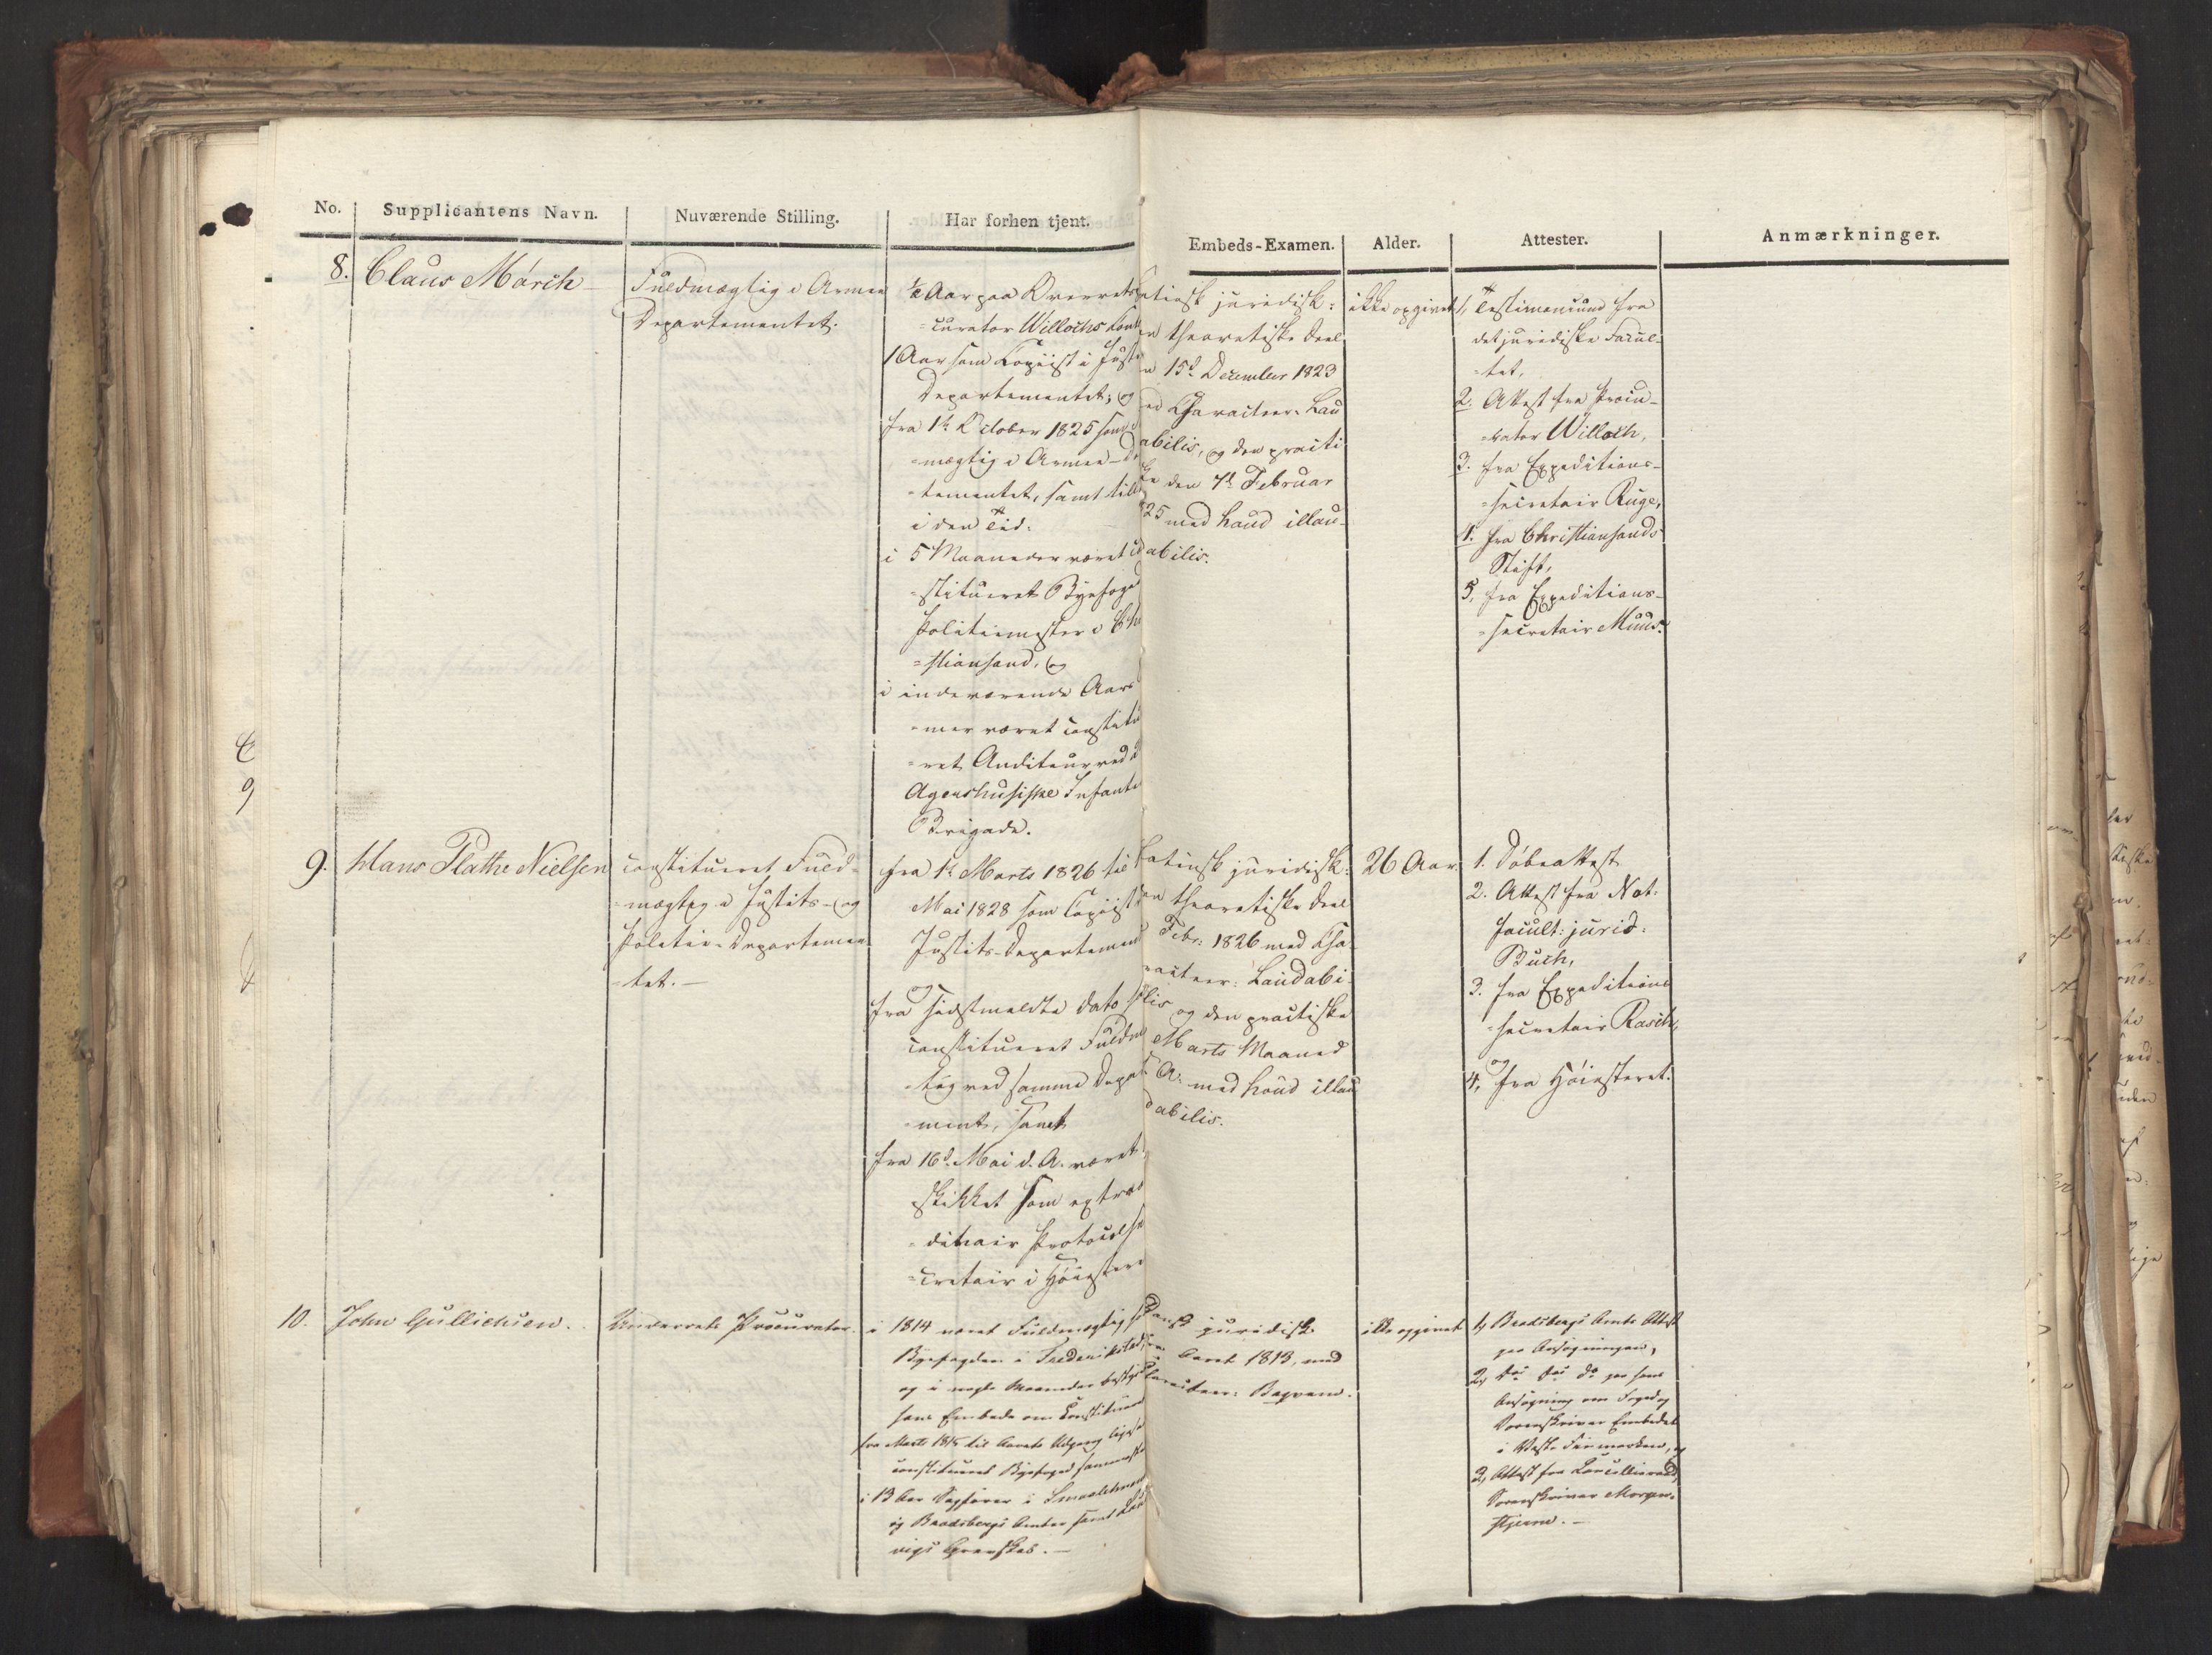 No.
Supplicantens Navn.
Nuværende Stilling.
Har forhen tjent.
Embeds-Examen.
Alder.
Attester.
Anmærkninger.
8.
Claus Mørch
Fuldmægtig i Armee
Departementet.
½ Aar paa Overrets
=curator Willochs Cont
1 Aar som Copiist i Justi
Departementet; og
fra 1ste October 1825 som
=mægtig i Armee-De
=tementet, samt till
i den Tid:
i 5 Maaneder været
=stitueret Byefoged
Politiemester i Chri
=stiansand, og
i indeværende Aars
=mer været constitu
=ret Auditeur ved
Agershusiske Infante
Brigade.
Latinsk juridisk:
en theoretiske Deel
n 15de December 1823
ed Characteer: Lau
abilis, og den practi
ke den 7de Februar
25 med haud illau-
dabilis.
ikke opgivet
1, Testimonium fra
det juridiske Facul-
=tet,
2. Attest fra Procu-
=rator Willoch,
3. fra Expeditions-
=secretair Ruge,
4. fra Christiansands
Stift,
5. fra Expeditions-
=secretair Muns.
9.
Hans Plathe Nielsen
constitueret Fuld-
=mægtig i Justits- og
Politie-Departemen
=tet.-
fra 1ste Marts 1826 til
Mai 1828 som Copiist
Justits-Departement
og
fra sidstmeldte dato
constitueret Fuldm
=tig ved samme Depar
=ment, samt
fra 16de Mai d. A. været
skikket som extrao
=dinair Protocolse
=cretair i Høiestere
Latinsk juridisk:
en theoretiske Deel
Febr: 1826 med Cha
racteer: Laudabi
lis og den practiske
Marts Maaned
A: med haud illau
dabilis.
26 Aar
1. Døbeattest
2. Attest fra Not:
facult: jurid:
Buch,
3. fra Expeditions
=secretair Rasch,
og
4, fra Høiesteret.
10.
John Gullichsen.
Underrets Procurator.
i 1814 været Fuldmægtig
Byefogden i Frederikstad,
og i nogle Maaneder bestyr
hans Embede som Constitueret
fra Marts 1815 til Aarets Udgang
constitueret Byefoged sammeste
i 13 Aar Sagfører i Smaalehnene
og Bradsbergs Amter samt Lau
vigs Grevskab.-
Dansk juridisk
Aaret 1813, med
Characteer: Beqvem.
ikke opgivet
1, Bradsbergs Amts Attest
paa Ansøgningen,
2, do do do paa hans
Ansøgning om Foged og
Sorenskriver Embedet
i Vest Finmarken, og
3, Attest fra Cancellieraad,
Sorenskriver Morgen-
stjerne.-